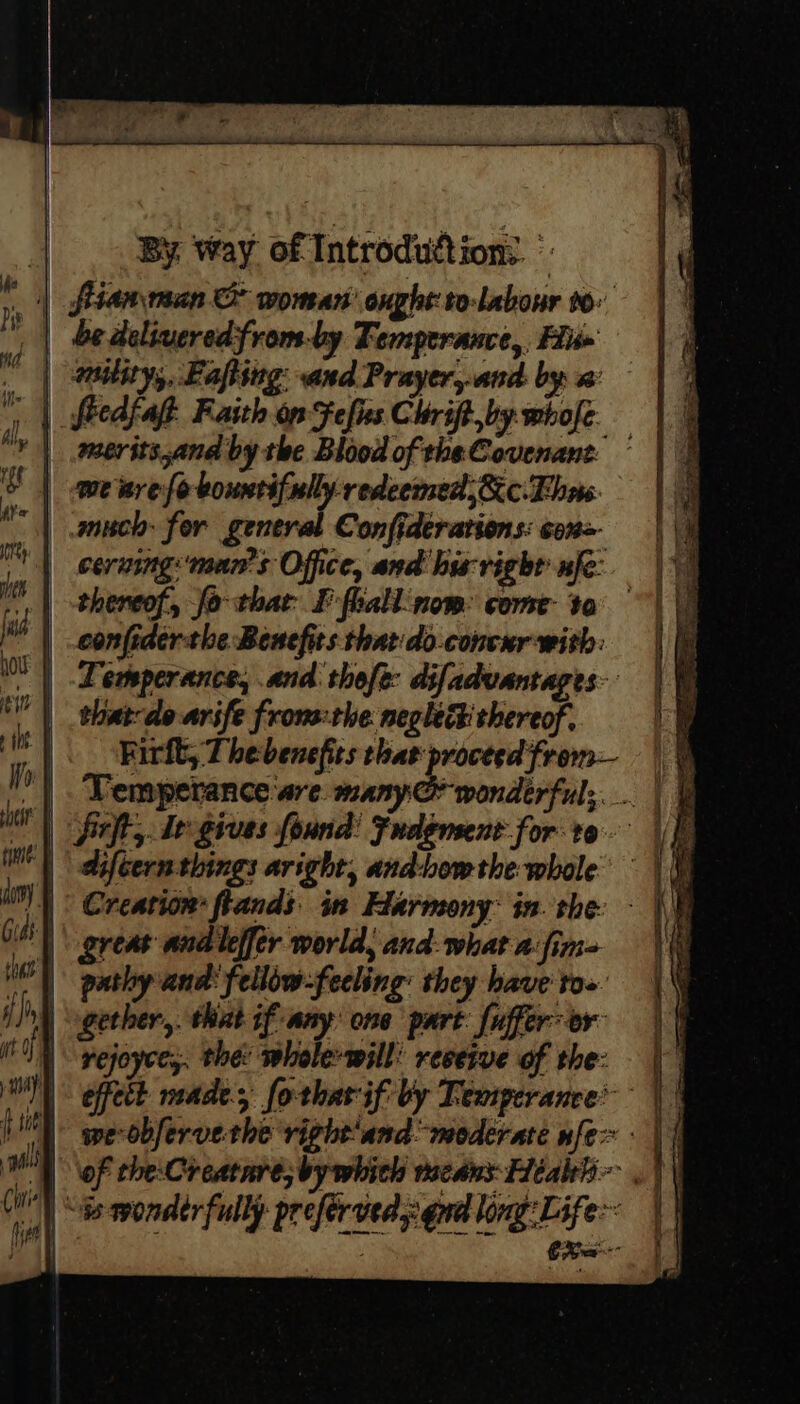 By way of Introduction.
ſtian man & woman ought to labour to
be delivered from by Temperance, Hu-
mility, Faſting and Prayer, and by a
ſtedfaſt Faith on Jeſus Chriſt, by whoſe
merits, and by the Blood of the Covenant
we are ſo bountifully redeemed, &c. Thus
much for general Conſiderations con-
cerning man's Office, and his right uſe
thereof, ſo that I ſhall now come to
conſider the Benefits that do concur with
Temperance, and thoſe diſadvantages
that do ariſe from the neglect thereof.
Firſt, The benefits that proceed from
Temperance are many & wonderful;
firſt, It gives ſound Judgment for to
diſcern things aright, and how the whole
Creation ſtands in Harmony in the
great and leſſer world, and what a ſim-
pathy and fellow-feeling they have to-
gether, that if any one part ſuffer or
rejoyce, the whole will receive of the
effect made; ſo that if by Temperance
we obſerve the right and moderate uſe
of the Creature, by which means Health
is wonderfully preſerved, and long Life